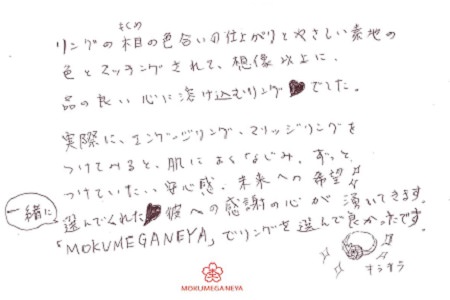 リングの木目の色合いの仕上がりとやさしい素地の
もくめ
色とマッチングされて、想像以上に、
品の良い心に溶け込むリング♥でした。
実際に、エンゲージリング、マリッジリングを
つけてみると、肌によくなじみ、ずっと
つけていたい安心感、未来への希望
一緒に
選んでくれた♥彼への感謝の心が湧いてきます。
「MOKUMEGANEYA」でリングを選んで良かったです。
キラキラ
MOKUMEGANEYA